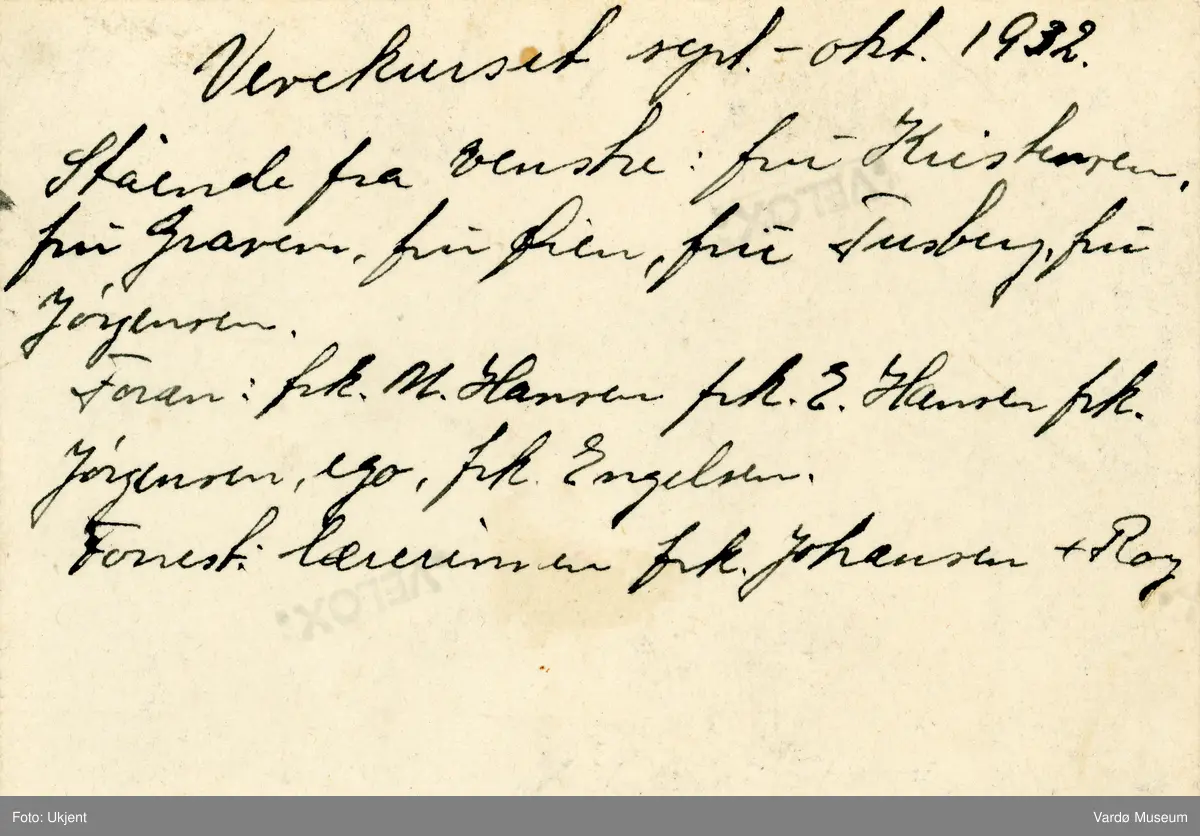 Vevekurset sept. - okt. 1932.
Stående fra venstre: fru Kristensen,
fru Gravem, fru Øien, fru Tusberg, fru
Jørgensen.
Foran: frk. M. Hansen frk. E. Hansen frk.
Jørgensen, ego, frk. Engelsen.
Forrest: lærerinnen frk. Johansen + Roy
VELOX:
VELOX:
Foto: Ukjent
Vardø Museum